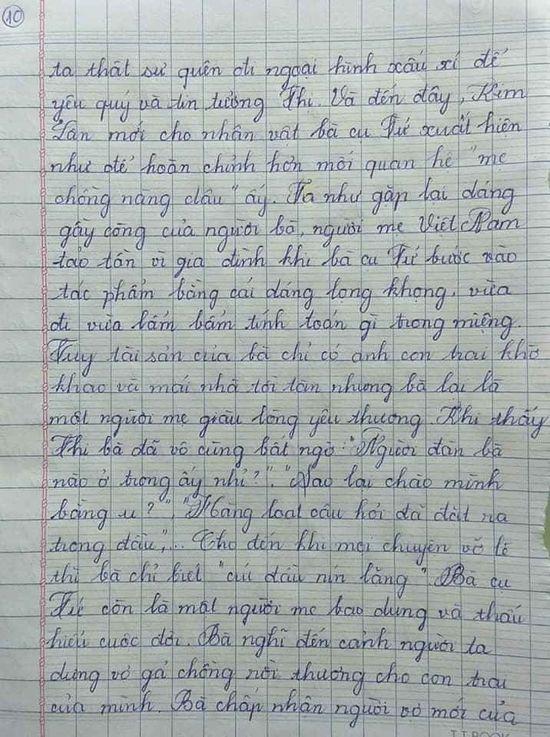 10
ta thật sự quên đi ngoại hình xấu xí để
yêu quý và tin tưởng Thị. Và đến đây, Kim
Lân mới cho nhân vật bà cụ Tứ xuất hiện
như để hoàn chỉnh hơn mối quan hệ "mẹ
chồng nàng dâu" ấy. Ta như gặp lại dáng
gầy còng của người bà, người mẹ Việt Nam
tảo tần vì gia đình khi bà cụ Tứ bước vào
tác phẩm bằng cái dáng lọng khọng, vừa
đi vừa lẩm bẩm tính toán gì trong miệng.
Tuy tài sản của bà chỉ có anh con trai khờ
khạo và mái nhà tồi tàn nhưng bà lại là
một người mẹ giàu lòng yêu thương. Khi thấy
Thị bà đã vô cùng bất ngờ: "Người đàn bà
nào ở trong ấy nhỉ?". "Sao lại chào mình
bằng u?" "Hàng loạt câu hỏi đã đặt ra
trong đầu",... Cho đến khi mọi chuyện vỡ lẽ
thì bà chỉ biết "cúi đầu nín lặng" Bà cụ
Tứ còn là một người mẹ bao dung và thấu
hiểu cuộc đời. Bà nghĩ đến cảnh người ta
dựng vợ gả chồng rồi thương cho con trai
của mình. Bà chấp nhận người vợ mới của